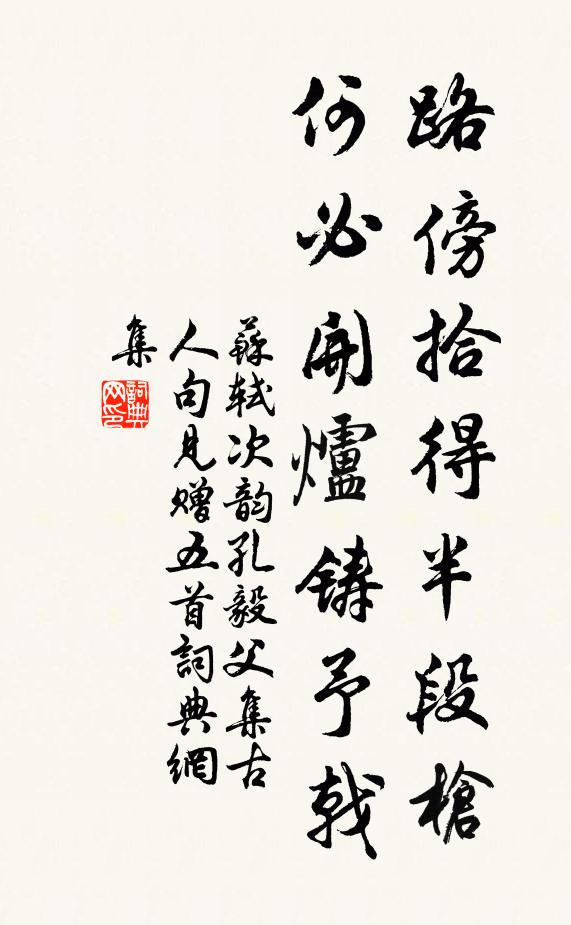 路傍拾得半段槍
何必開爐鑄予戟
蘇軾次韵孔毅父集古
人句見贈五首詞典網
集
詞典
网印